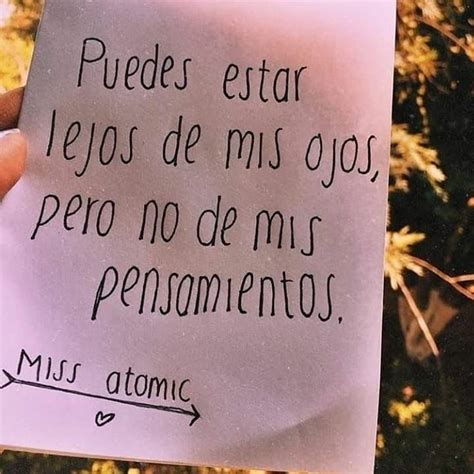 Puedes estar
lejos de mis ojos,
pero no de mis
pensamientos.
Miss atomic